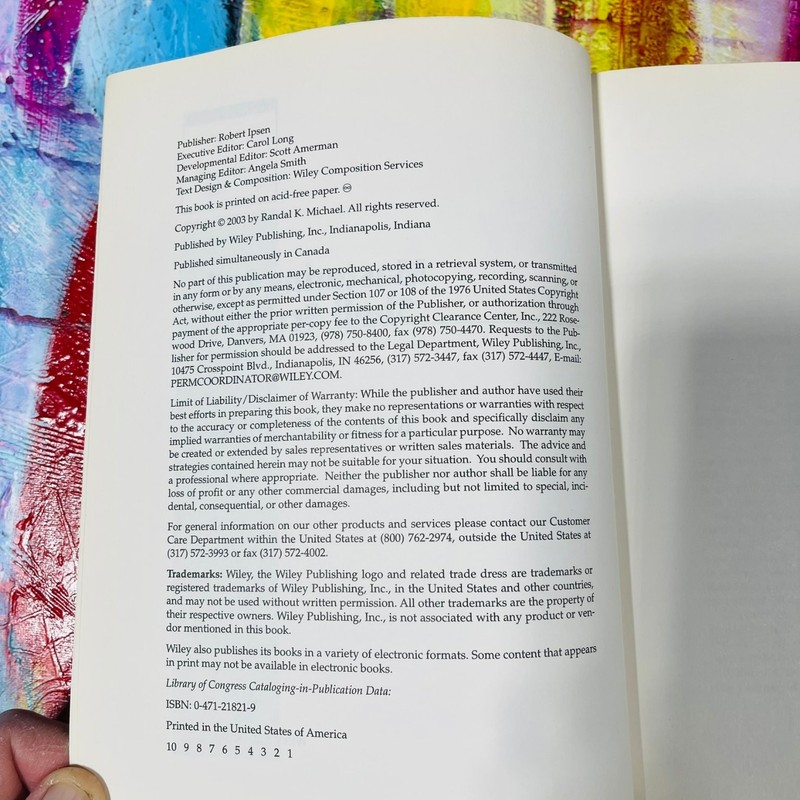 Publisher: Robert Ipsen
Executive Editor: Carol Long
Developmental Editor: Scott Amerman
Managing Editor: Angela Smith
Text Design & Composition: Wiley Composition Services
This book is printed on acid-free paper. ♾
Copyright © 2003 by Randal K. Michael. All rights reserved.
Published by Wiley Publishing, Inc., Indianapolis, Indiana
Published simultaneously in Canada
No part of this publication may be reproduced, stored in a retrieval system, or transmitted
in any form or by any means, electronic, mechanical, photocopying, recording, scanning, or
otherwise, except as permitted under Section 107 or 108 of the 1976 United States Copyright
Act, without either the prior written permission of the Publisher, or authorization through
payment of the appropriate per-copy fee to the Copyright Clearance Center, Inc., 222 Rose-
wood Drive, Danvers, MA 01923, (978) 750-8400, fax (978) 750-4470. Requests to the Pub-
lisher for permission should be addressed to the Legal Department, Wiley Publishing, Inc.,
10475 Crosspoint Blvd., Indianapolis, IN 46256, (317) 572-3447, fax (317) 572-4447, E-mail:
PERMCOORDINATOR@WILEY.COM.
Limit of Liability/Disclaimer of Warranty: While the publisher and author have used their
best efforts in preparing this book, they make no representations or warranties with respect
to the accuracy or completeness of the contents of this book and specifically disclaim any
implied warranties of merchantability or fitness for a particular purpose. No warranty may
be created or extended by sales representatives or written sales materials. The advice and
strategies contained herein may not be suitable for your situation. You should consult with
a professional where appropriate. Neither the publisher nor author shall be liable for any
loss of profit or any other commercial damages, including but not limited to special, inci-
dental, consequential, or other damages.
For general information on our other products and services please contact our Customer
Care Department within the United States at (800) 762-2974, outside the United States at
(317) 572-3993 or fax (317) 572-4002.
Trademarks: Wiley, the Wiley Publishing logo and related trade dress are trademarks or
registered trademarks of Wiley Publishing, Inc., in the United States and other countries,
and may not be used without written permission. All other trademarks are the property of
their respective owners. Wiley Publishing, Inc., is not associated with any product or ven-
dor mentioned in this book.
Wiley also publishes its books in a variety of electronic formats. Some content that appears
in print may not be available in electronic books.
Library of Congress Cataloging-in-Publication Data:
ISBN: 0-471-21821-9
Printed in the United States of America
10 9 8 7 6 5 4 3 2 1